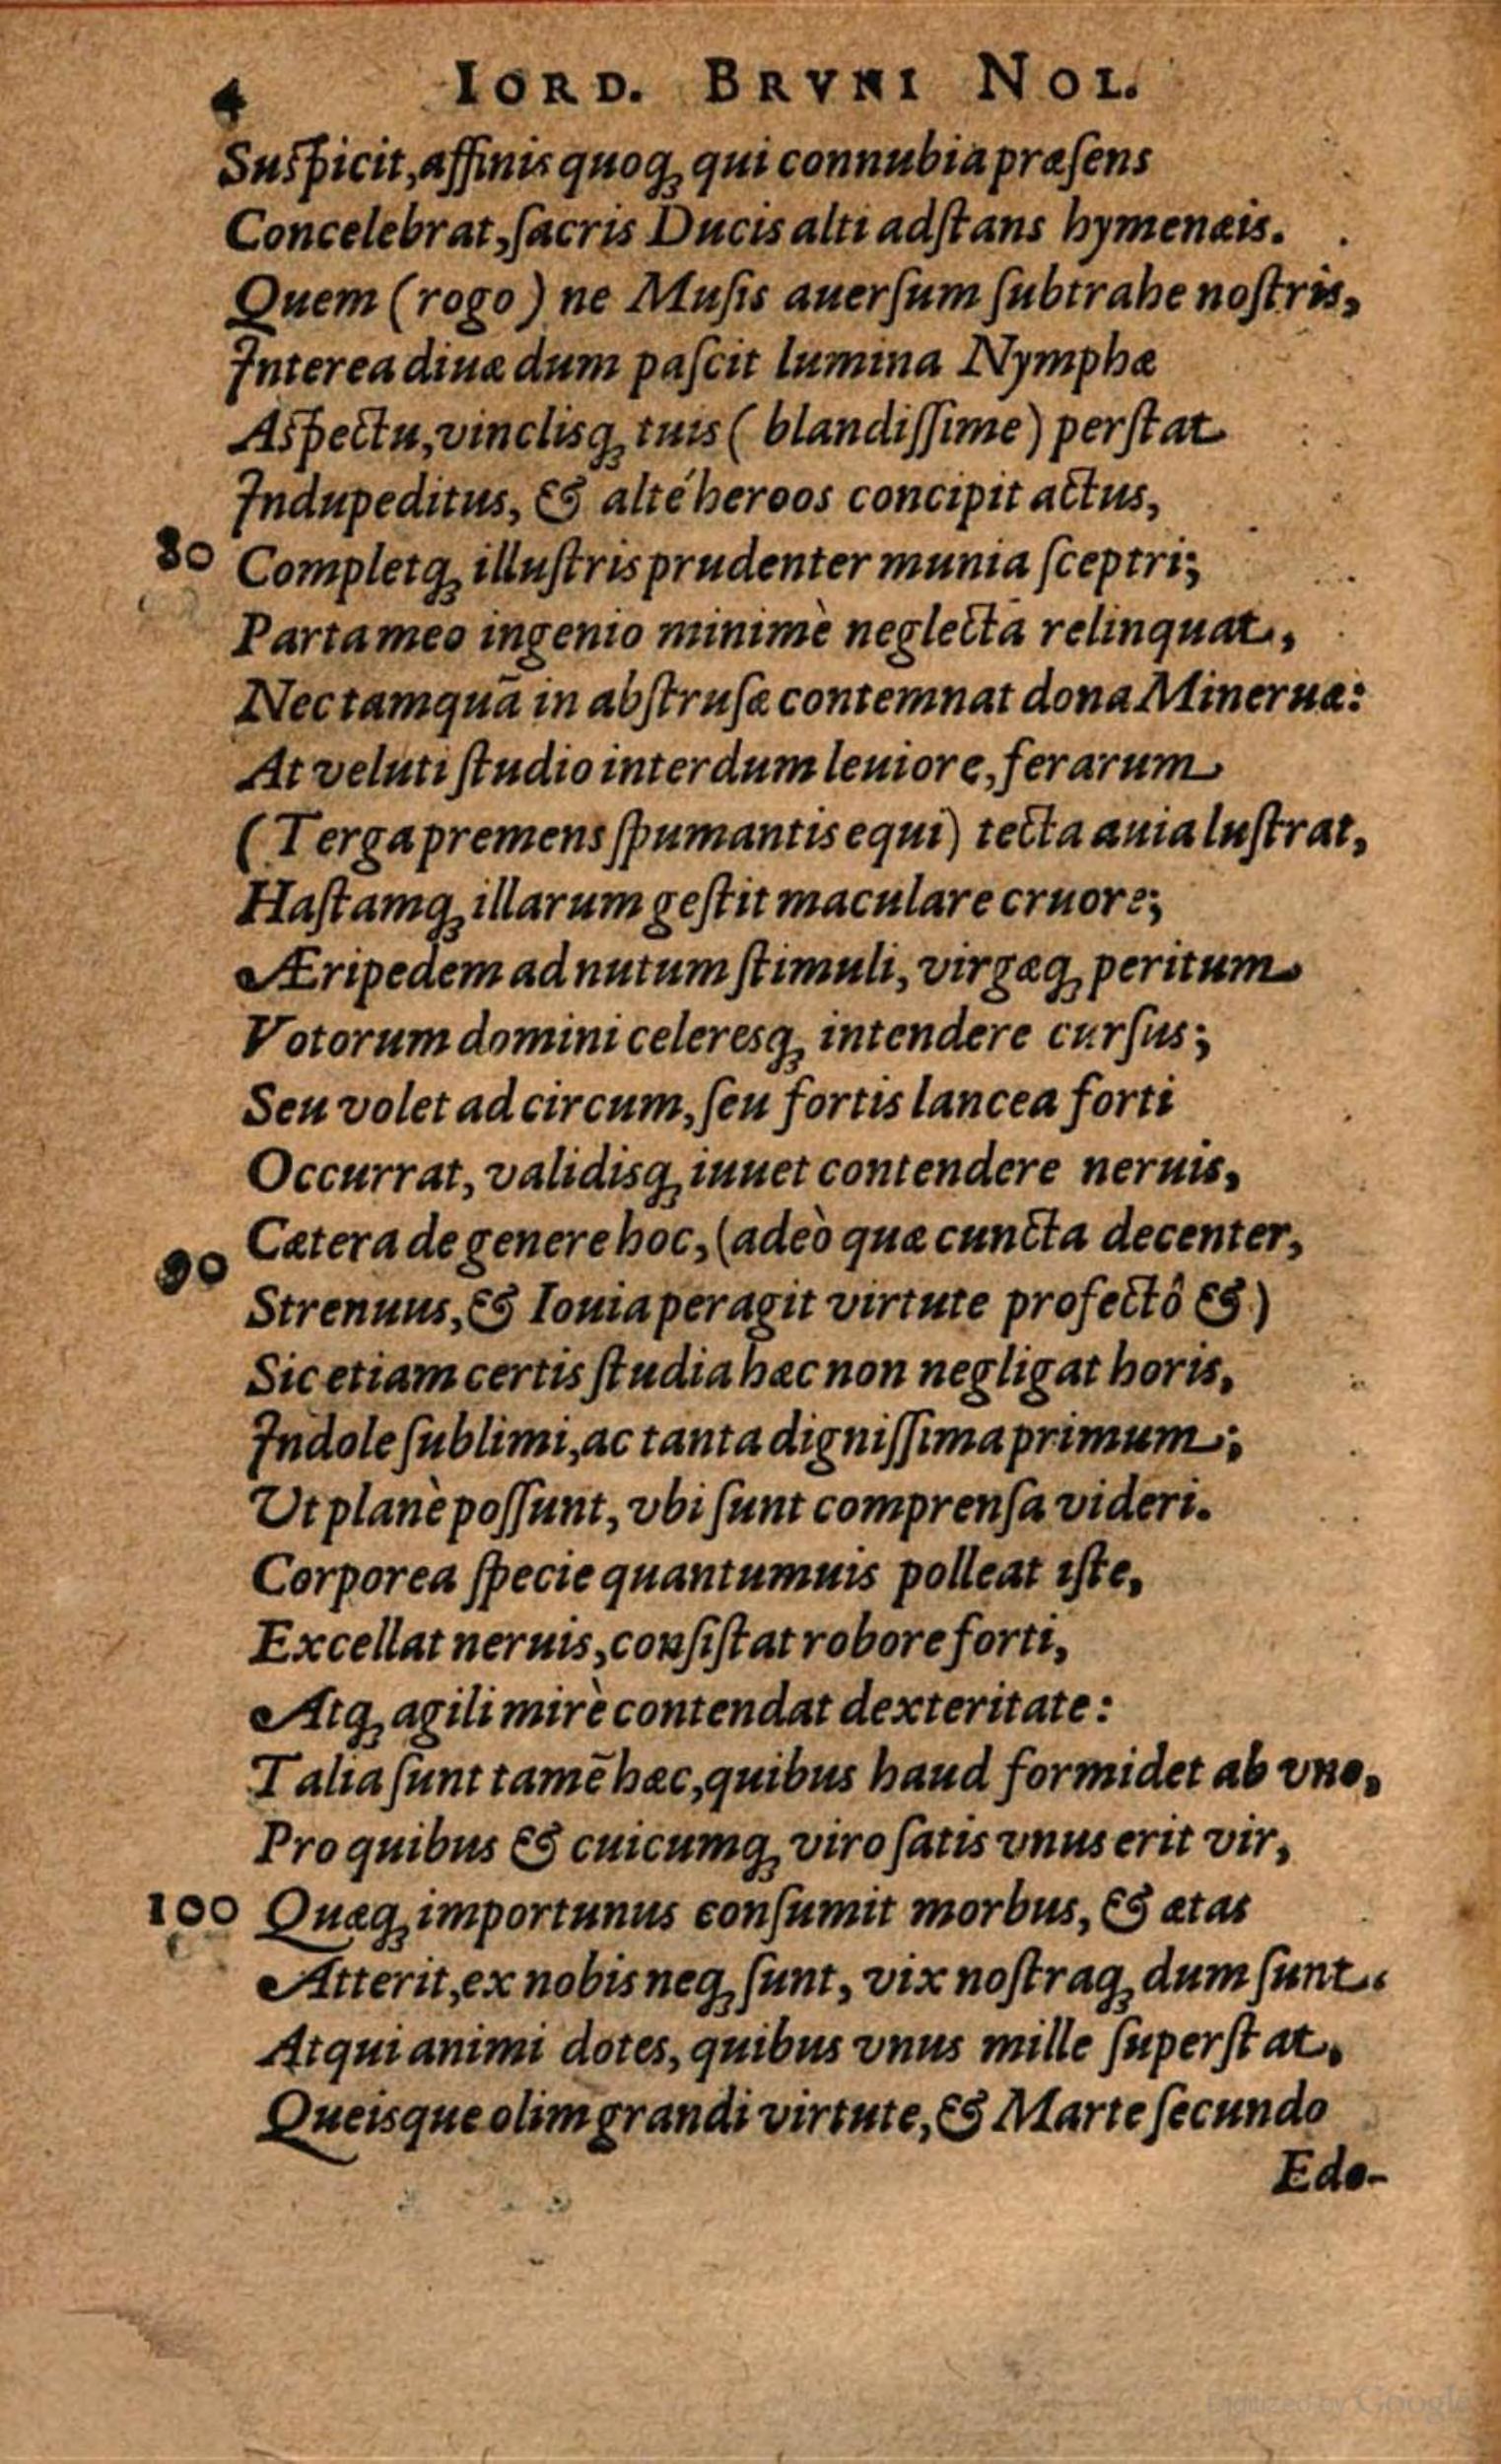 4 IORD. BRVNI NOL.
Suſpicit, affinis quoq; qui connubia præſens
Concelebrat, ſacris Ducis alti adſtans hymenæis.
Quem (rogo) ne Muſis auerſum ſubtrahe noſtris,
Interea diuæ dum paſcit lumina Nymphæ
Aſpectu, vinclisq; tuis (blandiſſime) perſtat
Indupeditus, & altè heroos concipit actus,
80 Completq; illuſtris prudenter munia ſceptri;
Parta meo ingenio minimè neglecta relinquat,
Nec tamquā in abſtruſæ contemnat dona Mineruæ:
At veluti ſtudio interdum leuiore, ferarum
(Terga premens ſpumantis equi) tecta auia luſtrat,
Haſtamq; illarum geſtit maculare cruore;
Æripedem ad nutum ſtimuli, virgæq; peritum
Votorum domini celeresq; intendere curſus;
Seu volet ad circum, ſeu fortis lancea forti
Occurrat, validisq; iuuet contendere neruis,
90 Cætera de genere hoc, (adeò quæ cuncta decenter,
Strenuus, & Iouia peragit virtute profectô &)
Sic etiam certis ſtudia hæc non negligat horis,
Indole ſublimi, ac tanta digniſſima primum;
Ut planè poſſunt, vbi ſunt comprenſa videri.
Corporea ſpecie quantumuis polleat iſte,
Excellat neruis, conſiſtat robore forti,
Atq; agili mirè contendat dexteritate:
Talia ſunt tamē hæc, quibus haud formidet ab vno,
Pro quibus & cuicumq; viro ſatis vnus erit vir,
100 Quæq; importunus conſumit morbus, & ætas
Atterit, ex nobis neq; ſunt, vix noſtraq; dum ſunt.
Atqui animi dotes, quibus vnus mille ſuperſtat,
Queisque olim grandi virtute, & Marte ſecundo
Edo-
Digitized by Google